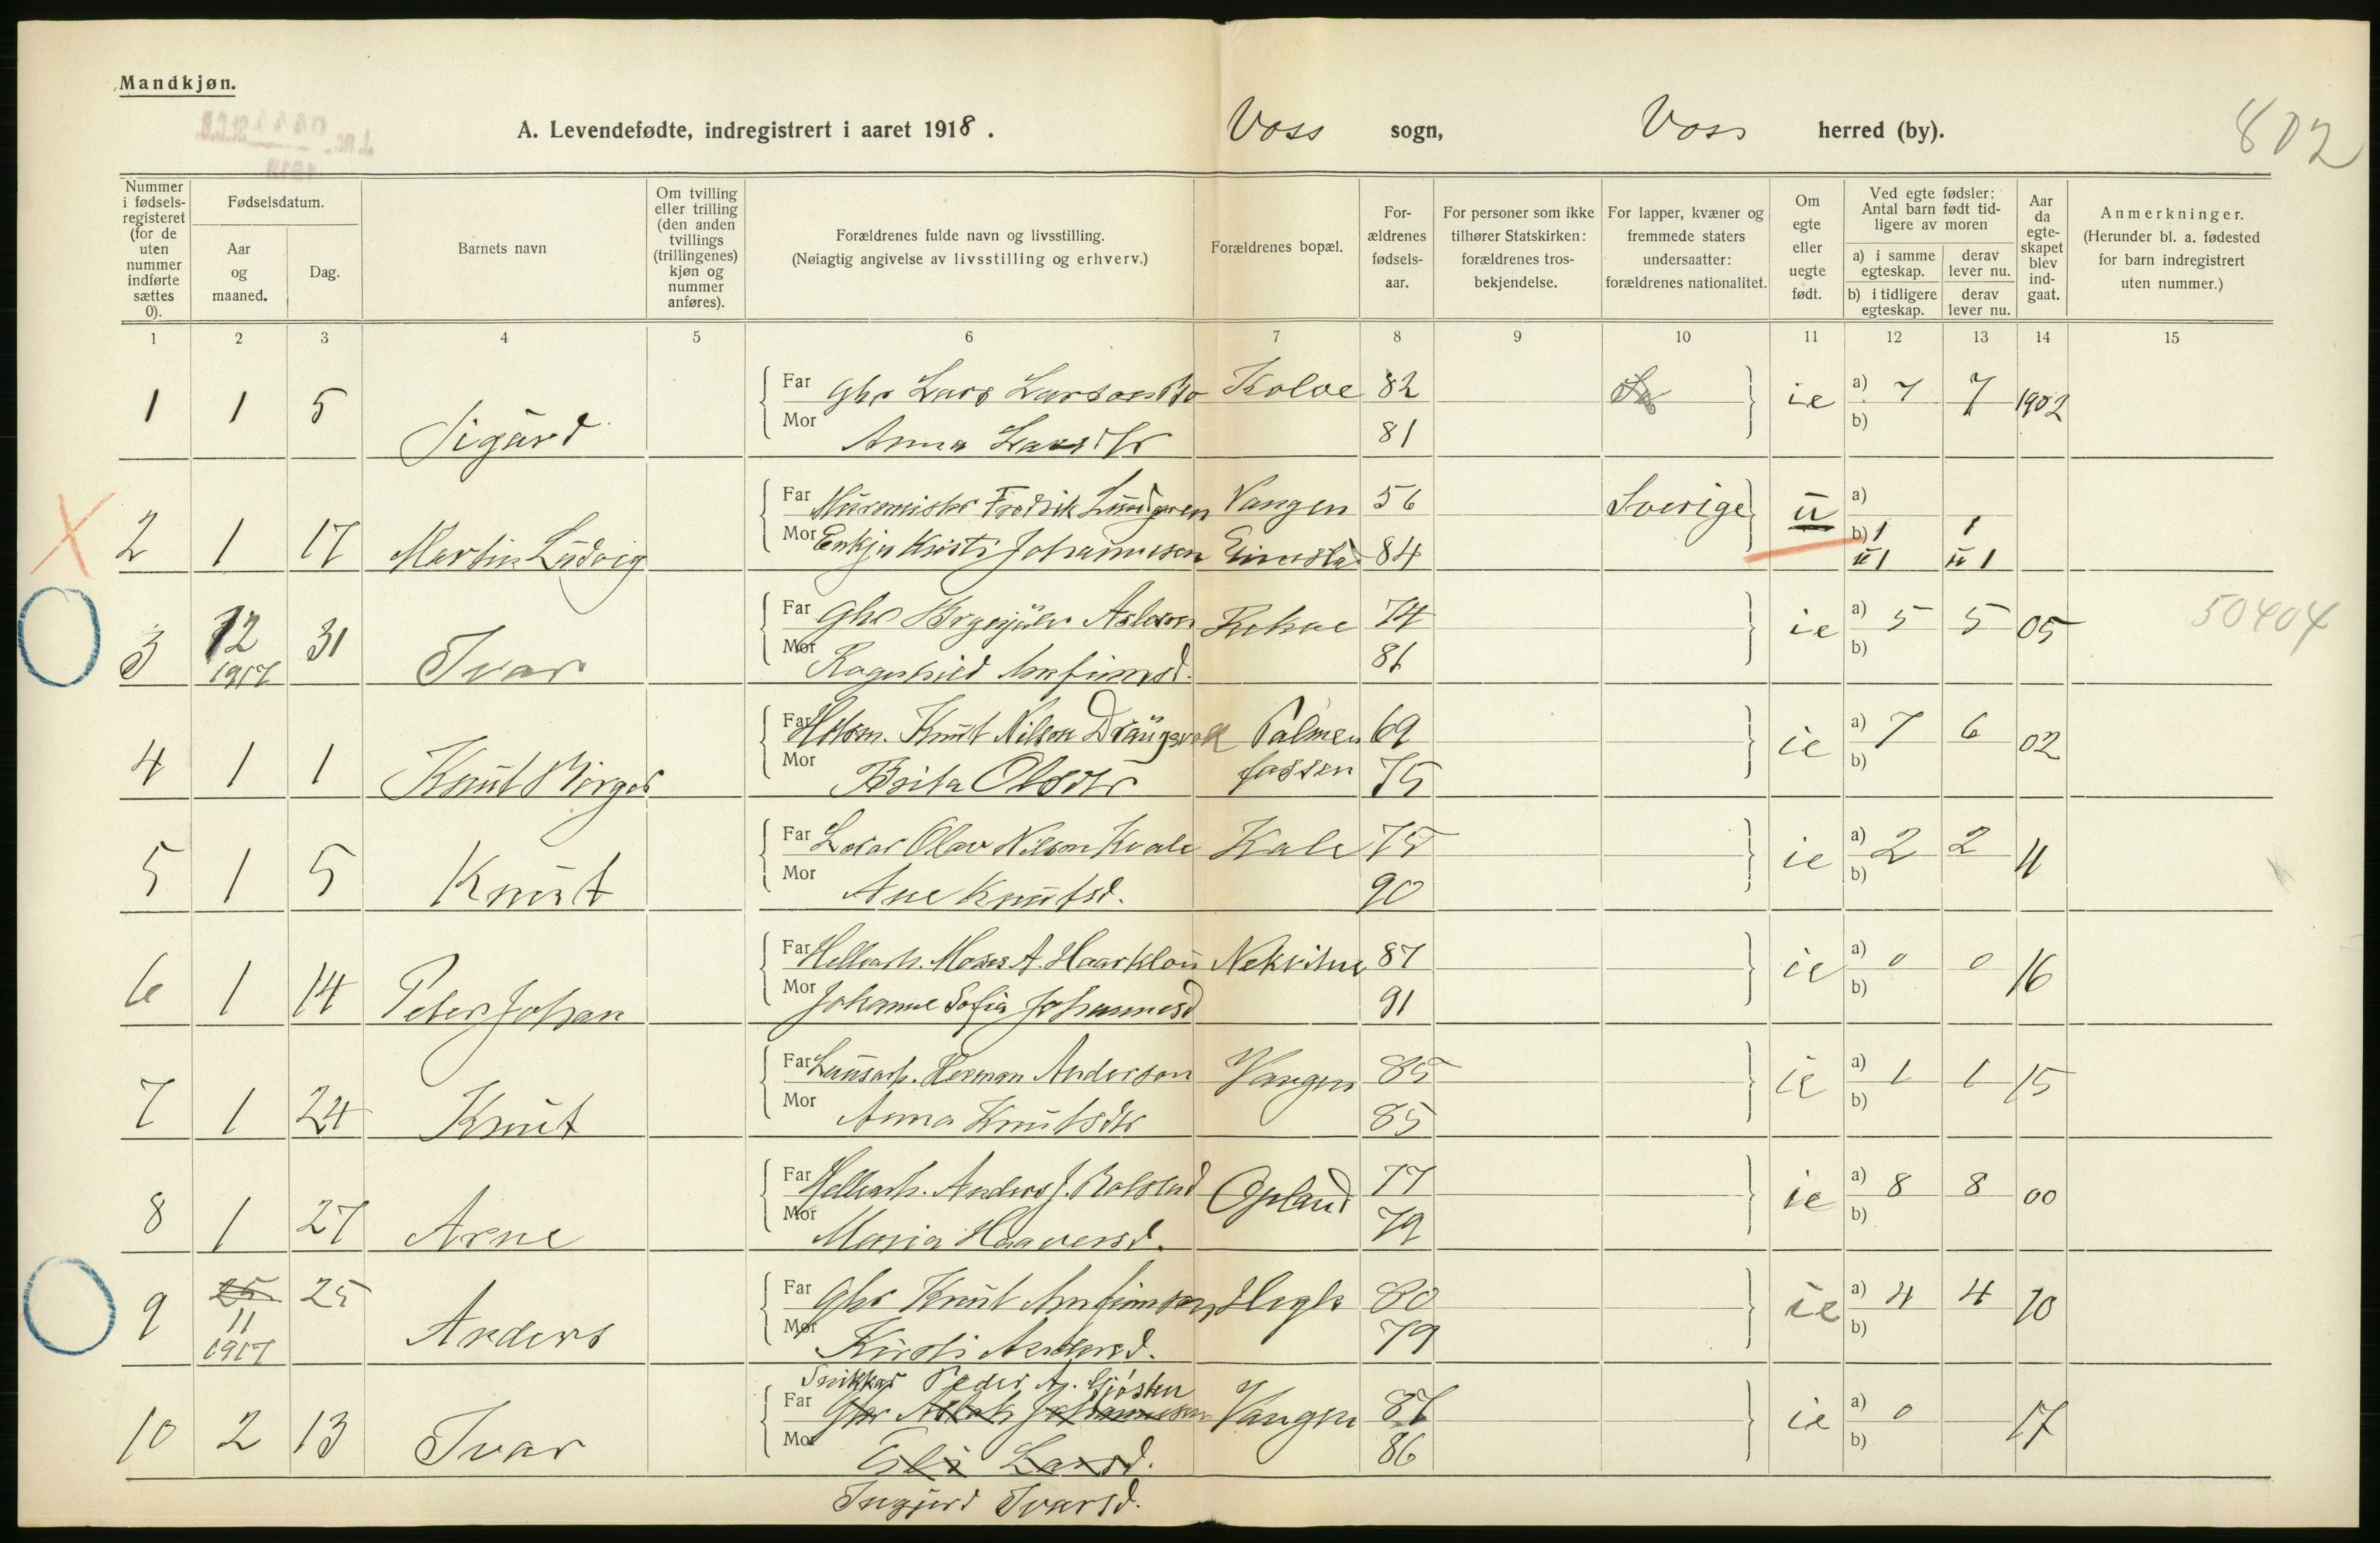 Mandkjøn.
A. Levendefødte, indregistrert i aaret 1918. Voss sogn, Voss herred (by). 802
Nummer i fødsels-registeret (for de uten nummer indførte sættes 0).
Fødselsdatum.
Aar og maaned.
Dag.
Barnets navn
Om tvilling eller trilling (den anden tvillings (trillingenes) kjøn og nummer anføres).
Forældrenes fulde navn og livsstilling.
(Nøiagtig angivelse av livsstilling og erhverv.)
Forældrenes bopæl.
For-ældrenes fødsels-aar.
For personer som ikke tilhører Statskirken: forældrenes tros-bekjendelse.
For lapper, kvæner og fremmede staters undersaatter: forældrenes nationalitet.
Om egte eller uegte født.
Ved egte fødsler: Antal barn født tid-ligere av moren
a) i samme egteskap.
derav lever nu.
b) i tidligere egteskap.
derav lever nu.
Aar da egte-skapet blev ind-gaat.
Anmerkninger.
(Herunder bl. a. fødested for barn indregistrert uten nummer.)
1 2 3 4 5 6 7 8 9 10 11 12 13 14 15
1 1 5 Sigurd Far Gbr Lars Larson Bø Kolve 82 ie a) 7 7 1902
Mor Anna Larsdtr 81 b)
2 1 17 Martin Ludvig Far Murmester Fredrik Lundgren Vangen 56 Sverige u a)
Mor Enkja Kristi Johannesen 84 b) 1 1
u 1 u 1
3 12 1917 31 Ivar Far Gbr Brynjulv Asleson 74 ie a) 5 5 05 50404
Mor Ragnhild Arnfinnsd. 81 b)
4 1 1 Knut Birger Far Knut Nilson Palmen 69 ie a) 7 6 02
Mor Brita Olsdtr fossen 75 b)
5 1 5 Knut Far Lærar Olav Nilson Kvale 75 ie a) 2 2 11
Mor Ane Knutsd. 90 b)
6 1 14 Peter Johan Far Hellearb. Moses A. Haarklau Nekvitne 87 ie a) 0 0 16
Mor Johanne Sofia Johannesd 91 b)
7 1 24 Knut Far Lausarb. Herman Anderson Vangen 85 ie a) 1 1 15
Mor Anna Knutsdtr 85 b)
8 1 27 Arne Far Hellearb. Anders J. Rolstad Opland 77 ie a) 8 8 00
Mor Maria Haaversd. 79 b)
9 25 11 1917 25 Anders Far Gbr Knut Arnfinnson Hegle 80 ie a) 4 4 10
Mor Kirsti Andersd. 79 b)
Snikkar Peder A. Gjøsten
10 2 13 Ivar Far Gbr Aslak Johannesen Vangen 87 ie a) 0 17
Mor Eli Larsd. 86 b)
Ingjerd Ivarsd.